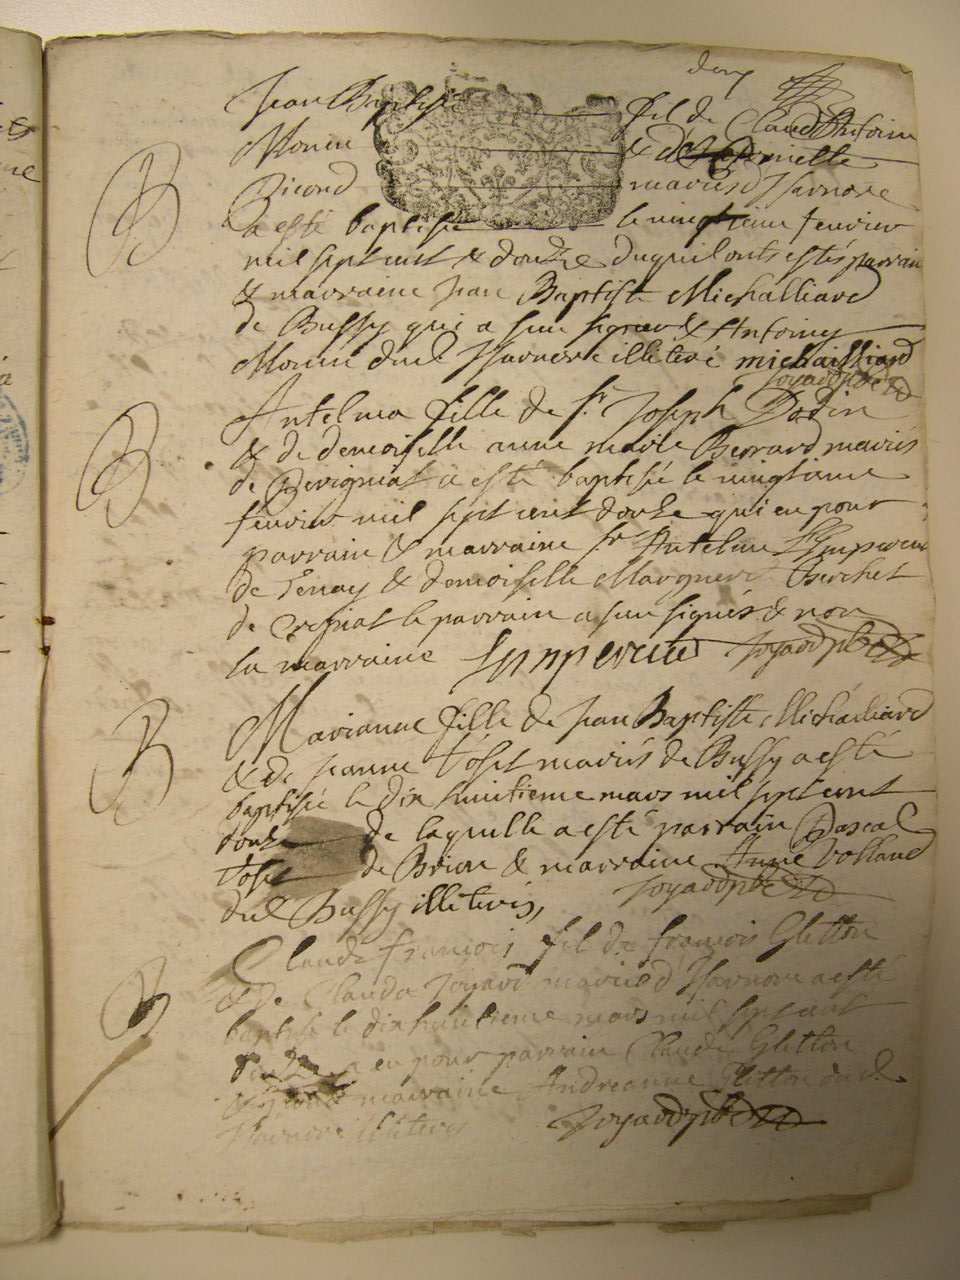 deux
Jean Baptiste fil de Claud Antoine
B Monin & de
Ricond mariés d'Isarnore
a esté baptisé le vingtieme fevrier
mil sept cent & douze duquel onts estés parrain
& marraine Jean Baptiste Michailliard
de Bussy qui a signé & Antoine
Monin dud. Isarnore illiteré michailliard
Joyard pbr
Antelma fille de sr. Joseph Dodin
B & de demoiselle anne marie Berrard mariés
de Bevigniat a esté baptisée le vingtieme
fevrier mil sept cent douze qui eu pour
parrain & marraine sr Antelme L'Empereur
de Tenay & demoiselle Marguerite Berchet
de le parrain a signés & non
la marraine Lempereur Joyard pbr
B Marianne fille de Jean Baptiste Michailliard
& de Jeanne Toset mariés de Bussy a esté
baptisée le dix huitieme mars mil sept cent
douze de laquelle a esté parrain Pascal
Tose de Brion & marraine Anne Volland
dud Bussy illiterés, Joyard pbr
Claude françois fil de françois Gletton
B & de Clauda Joyard mariés d'Isarnore a esté
baptisé le dix huitieme mars mil sept cent
douze a eu pour parrain Claude Gletton
& pour marraine Andreanne Gletton dud.
Isarnore illiterés Joyard pbr